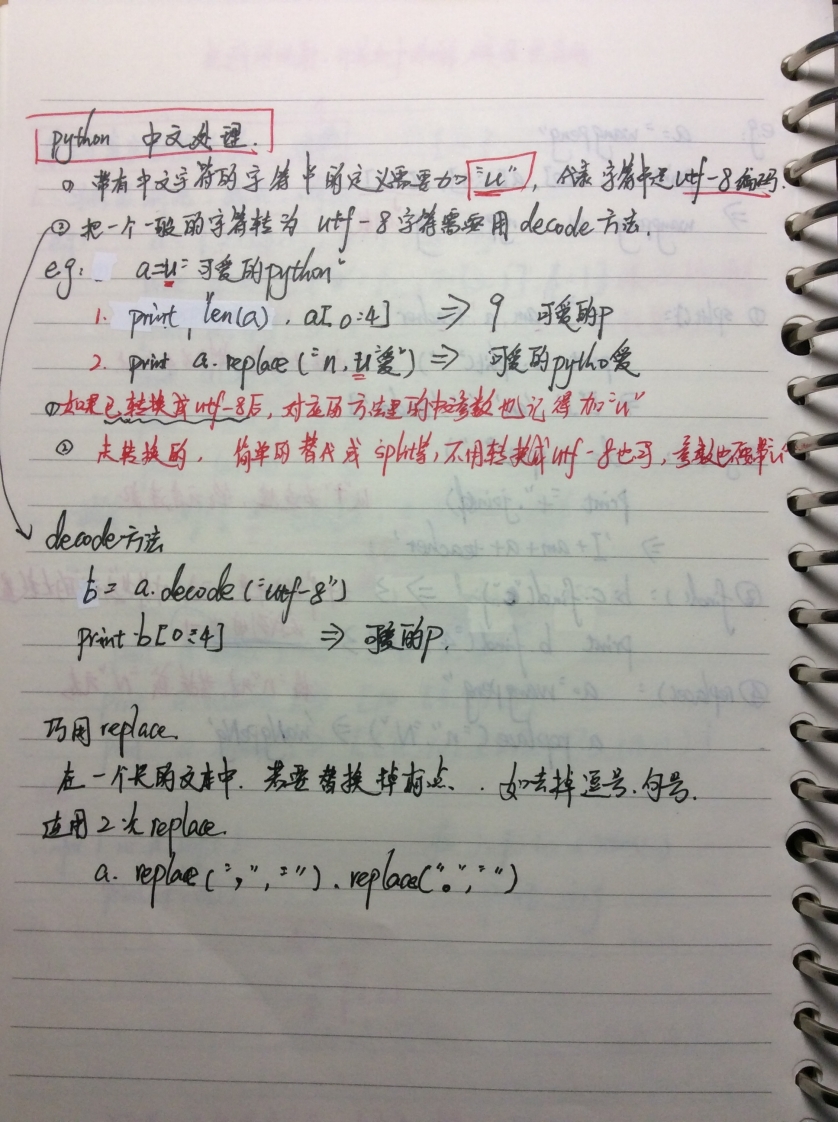 python 中文处理.
① 带有中文字符的字符串的定义需要加"u", 代表字符串是utf-8编码.
② 把一个一般的字符转为 utf-8字符需要用decode方法.
eg: a=u"可爱的python"
1. print len(a), a[0:4] ⇒ 9 可爱的p
2. print a.replace("n,u"爱") ⇒ 可爱的pytho爱
① 如果已转换成utf-8后, 对应的方法里的中参数也记得加"u"
② 未转换的, 简单的替代或split等, 不用转换成utf-8也可, 参数也不
decode方法
b = a.decode("utf-8")
print b[0:4] ⇒ 可爱的p.
巧用replace.
在一个长的文本中. 若要替换掉标点、. 如去掉逗号、句号.
应用2次replace.
a. replace(",", "").replace("。","")